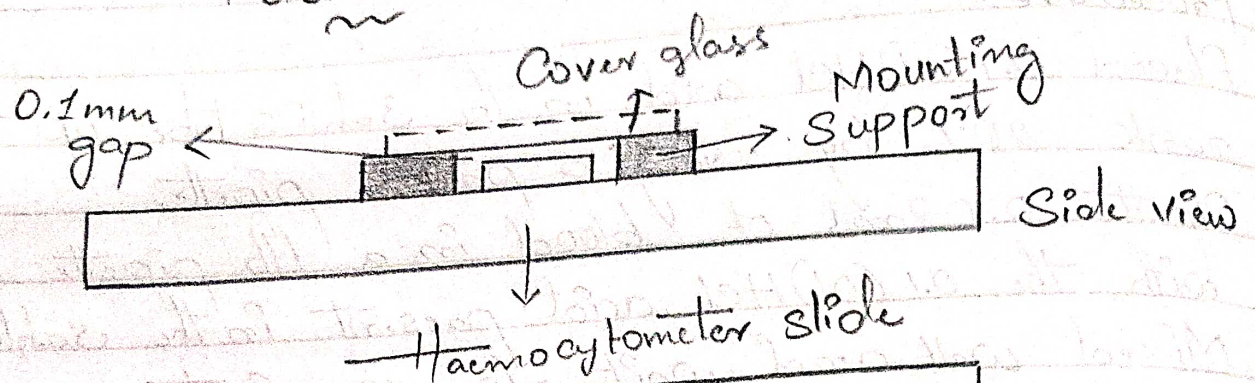 Cover glass
0.1mm
gap
Mounting
Support
Side view
Haemocytometer slide